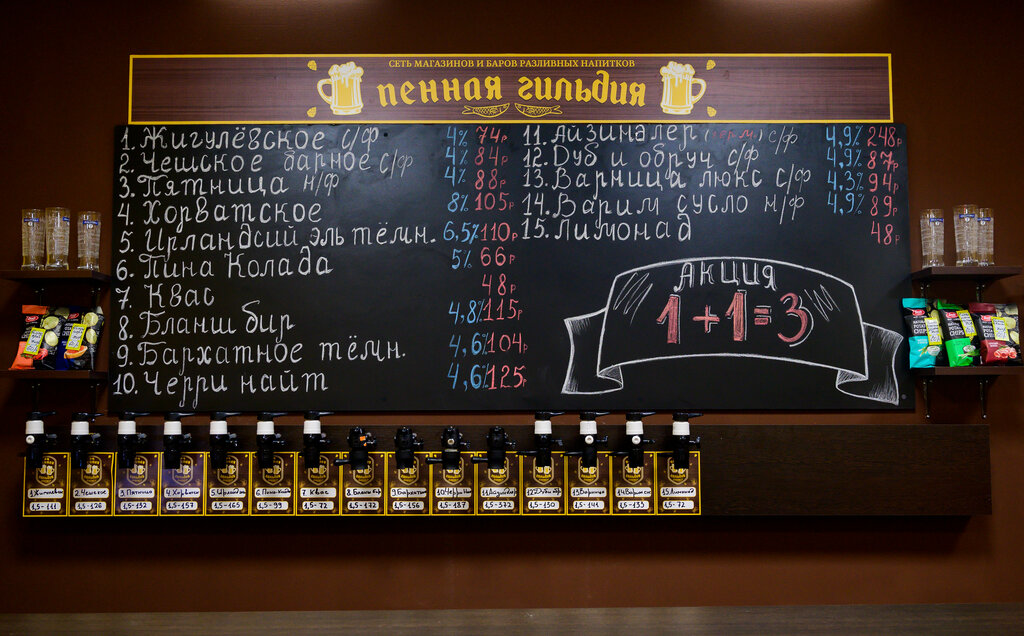 СЕТЬ МАГАЗИНОВ И БАРОВ РАЗЛИВНЫХ НАПИТКОВ
пенная гильдия
1. Жигулёвское с/ф 4% 74р
2. Чешское барное с/ф 4% 84р
3. Пятница н/ф 4% 88р
4. Хорватское 8% 105р
5. Ирландсий эль тёмн. 6.5% 110р
6. Пина Колада 5% 66р
7. Квас 48р
8. Бланш бир 4,8% 115р
9. Бархатное тёмн. 4,6% 104р
10. Черри найт 4,6% 125р
11. Айзиналер с/ф 4,9% 248р
12. Дуб и обруч с/ф 4,9% 87р
13. Варница люкс с/ф 4,3% 94р
14. Варим сусло н/ф 4,9% 89р
15. Лимонад 48р
АКЦИЯ
1+1=3
2. Чешское 3. Пятница 7. Квас
1,5-111 1,5-126 1,5-132 1,5-157 1,5-165 1,5-99 1,5-72 1,5-172 1,5-156 1,5-187 1,5-372 1,5-130 1,5-141 1,5-133 1,5-72